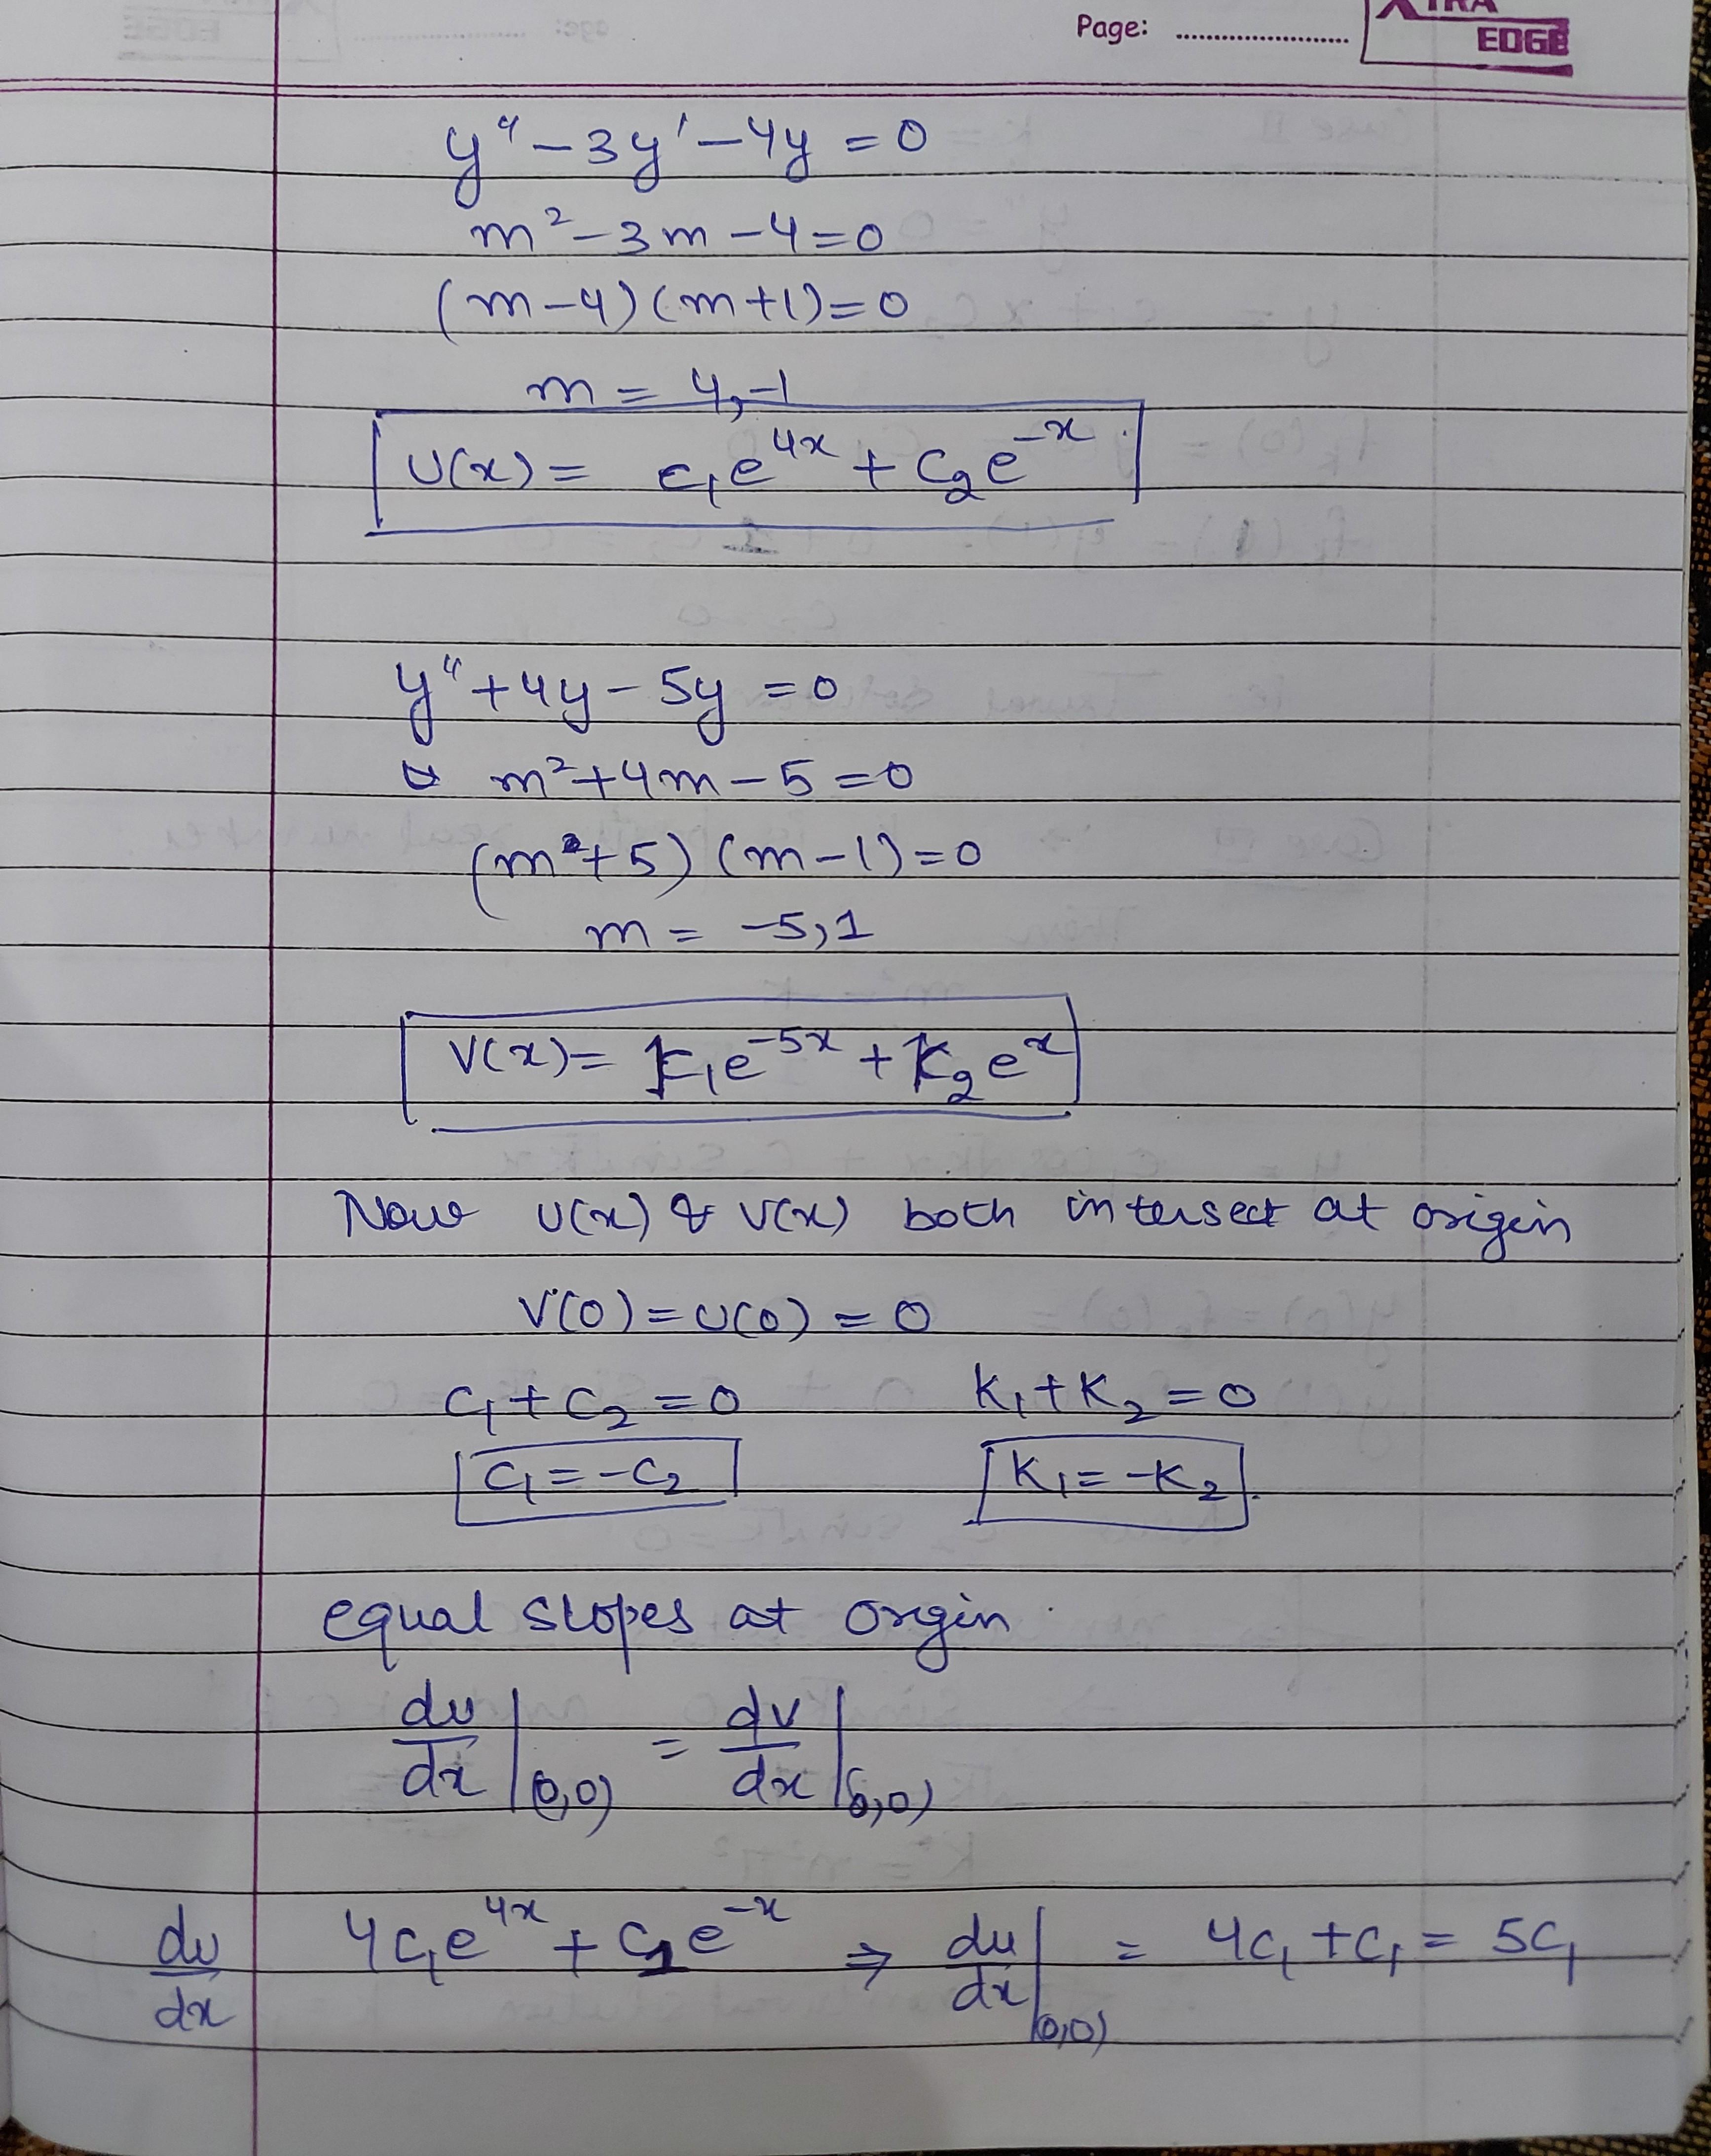 Page: ..........................
XTRA
EDGE
y" - 3y' - 4y = 0
m² - 3m - 4 = 0
(m - 4) (m + 1) = 0
m = 4, -1
U(x) = c₁e⁴ˣ + c₂e⁻ˣ
y" + 4y - 5y = 0
m² + 4m - 5 = 0
(m + 5) (m - 1) = 0
m = -5, 1
V(x) = K₁e⁻⁵ˣ + K₂eˣ
Now U(x) & V(x) both intersect at origin
V(0) = U(0) = 0
c₁ + c₂ = 0 K₁ + K₂ = 0
c₁ = -c₂ K₁ = -K₂
equal slopes at origin
du/dx |(0,0) = dv/dx |(0,0)
du/dx 4c₁e⁴ˣ + c₁e⁻ˣ ⇒ du/dx |(0,0) = 4c₁ + c₁ = 5c₁